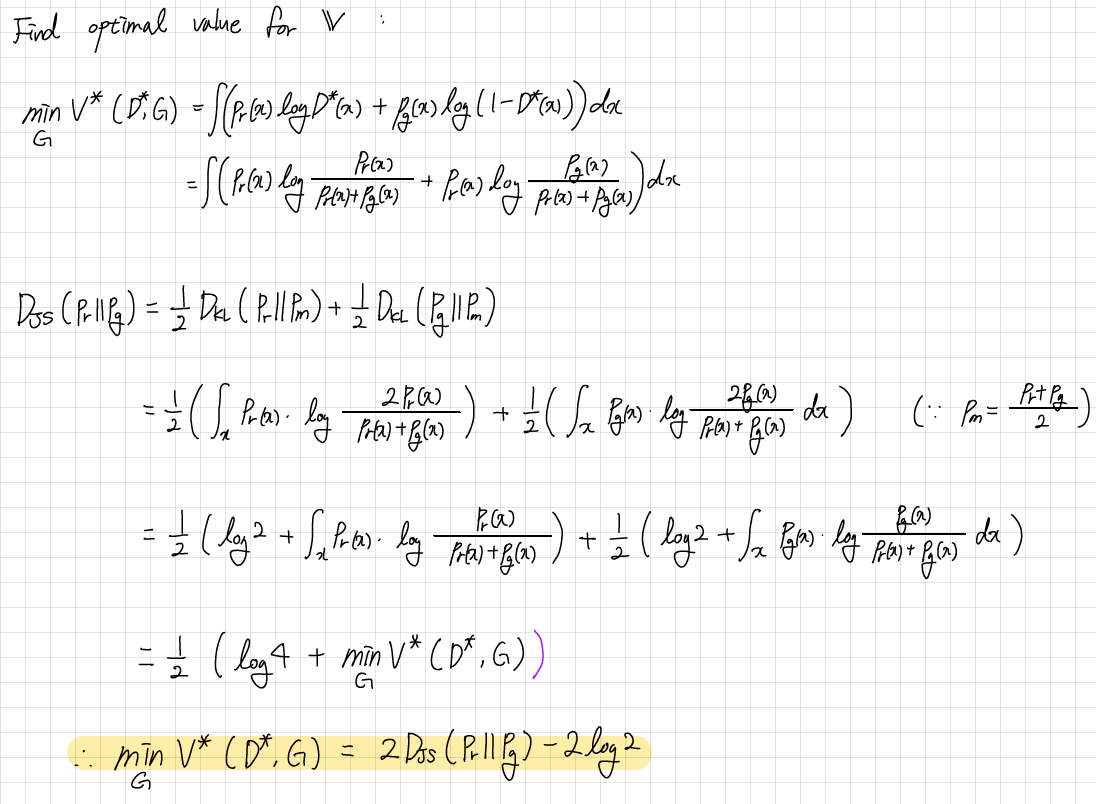 Find optimal value for 𝕍 :
min_G V* (D*, G) = ∫(Pr(x) log D*(x) + Pg(x) log (1-D*(x))) dx
= ∫(Pr(x) log Pr(x)/(Pr(x)+Pg(x)) + Pr(x) log Pg(x)/(Pr(x)+Pg(x))) dx
D_JS (Pr||Pg) = 1/2 D_KL (Pr||Pm) + 1/2 D_KL (Pg||Pm)
= 1/2 (∫_x Pr(x) · log 2Pr(x)/(Pr(x)+Pg(x))) + 1/2 (∫_x Pg(x) · log 2Pg(x)/(Pr(x)+Pg(x)) dx) (∵ Pm = (Pr+Pg)/2)
= 1/2 (log 2 + ∫_x Pr(x) · log Pr(x)/(Pr(x)+Pg(x))) + 1/2 (log 2 + ∫_x Pg(x) · log Pg(x)/(Pr(x)+Pg(x)) dx)
= 1/2 (log 4 + min_G V* (D*, G))
∴ min_G V* (D*, G) = 2 D_JS (Pr||Pg) - 2 log 2